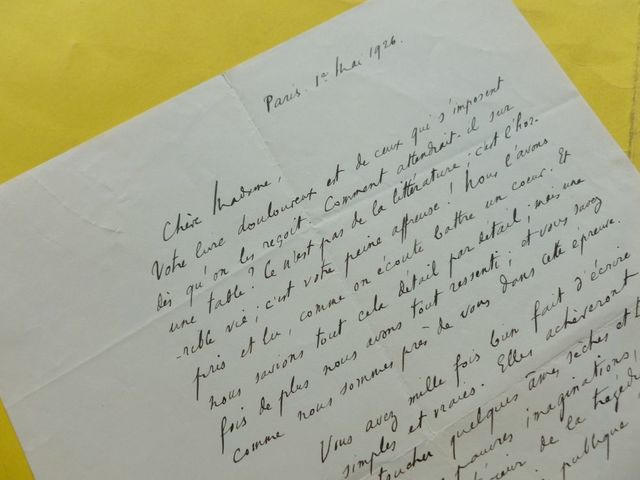 Paris. 1er Mai 1926.
Chère Madame,
Votre livre douloureux est de ceux qui s'imposent
dès qu'on les reçoit. Comment attendrait-il sur
une table? Ce n'est pas de la littérature; c'est l'hor-
-rible vie; c'est votre peine affreuse! Nous l'avons
pris et lu, comme on écoute battre un coeur. Et
nous savions tout cela détail par détail; mais une
fois de plus nous avons tout ressenti; et vous savez
comme nous sommes près de vous dans cette épreuve.
Vous avez mille fois bien fait d'écrire
simples et vraies. Elles achèveront
toucher quelques âmes sèches et
pauvres imaginations,
coeur de la tragéd
publique